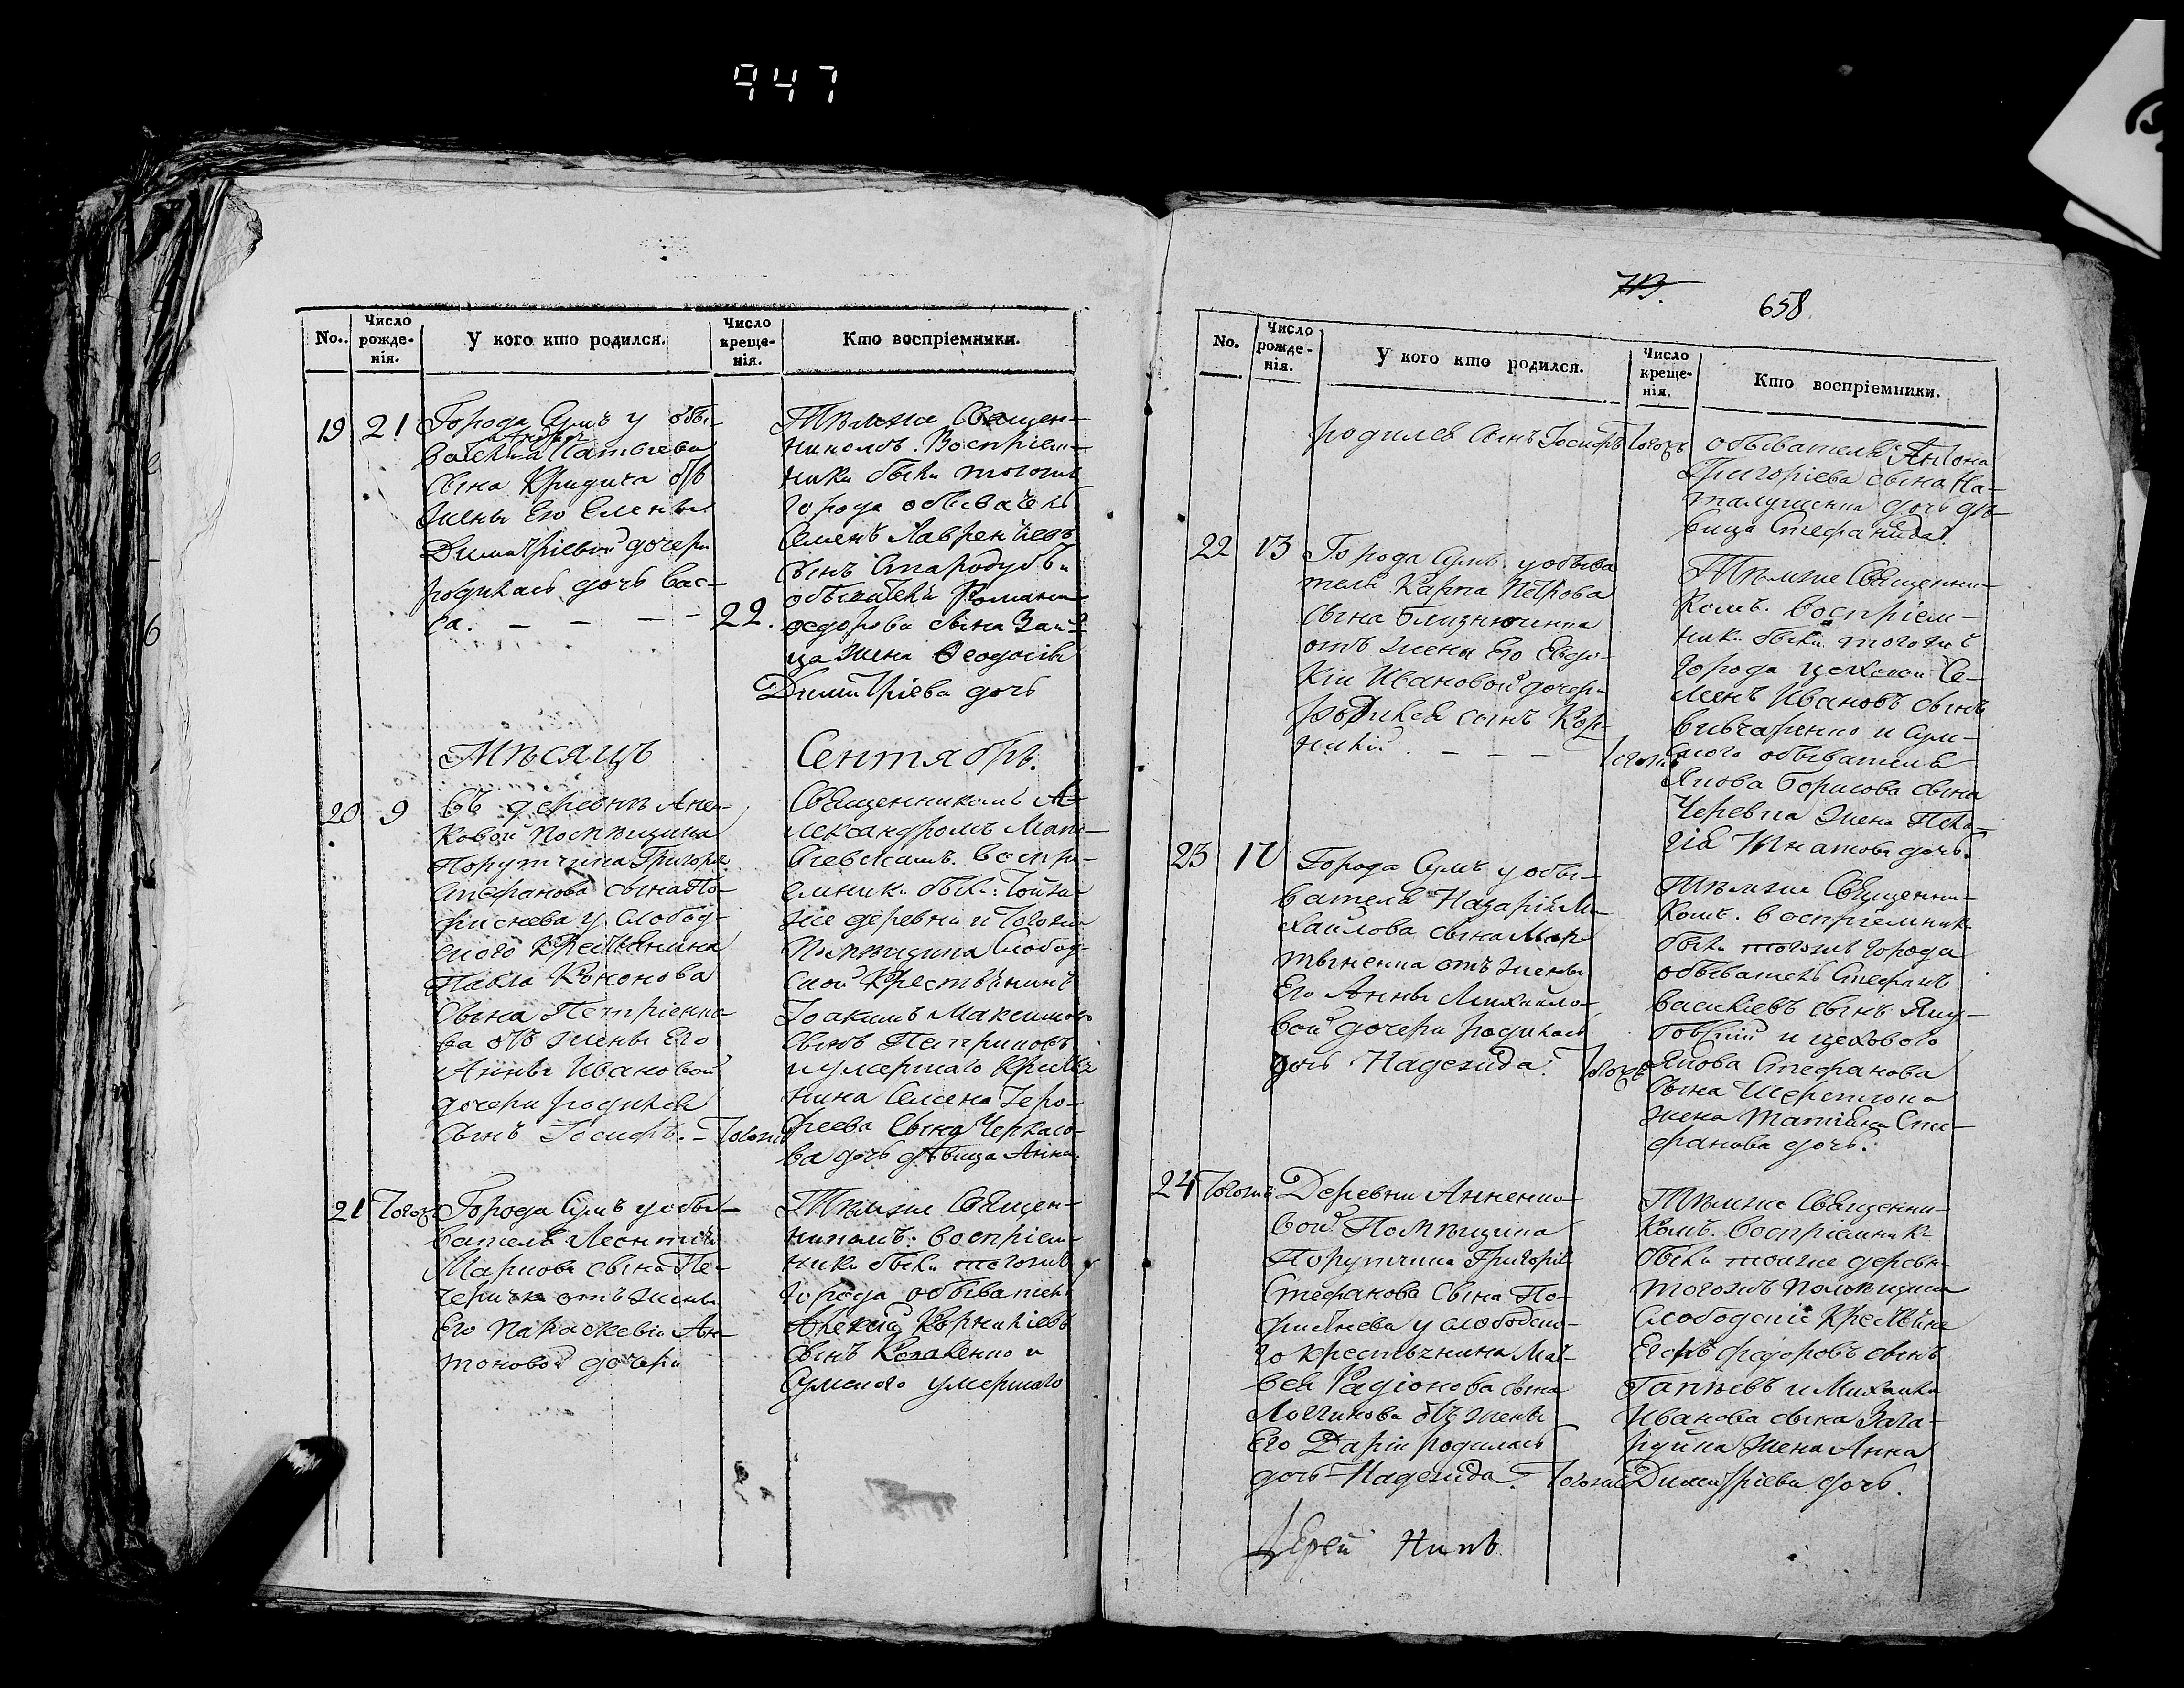 947
No.. Число рожде-нія. У кого кто родился. Число креще-нія. Кто воспріемники.
19 21 Города Сумъ у обы-
вателя Матвеева
сына
жены Его Елены
Димитріевой дочери
родилась дочь Вас-
са. — — — — 22.
Тѣмже Священ-
никомъ. Воспріем-
ники были тогожъ
города обыватель
Семенъ Лаврентіевъ
сынъ Стародубъ и
обывателя Романа
Федорова сына Зай-
ца жена Феодосія
Димитріева дочь
Мѣсяцъ Сентябрь.
20 9 Въ деревнѣ
ковой помѣщика
Порутчика Григорія
Стефанова сына По-
у слобод-
скаго крестьянина
Павла Кононова
сына Петріенко-
ва отъ жены Его
Анны Ивановой
дочери родился
сынъ Іосифъ. — Тогожъ
Священникомъ А-
лександромъ Мат-
воспрі-
емники были: Той-
же деревни и тогожъ
помѣщика слобод-
ской крестьянинъ
Іоакимъ Максимовъ
сынъ
и умершаго крестья-
нина Семена Іеро-
феева сына Черкасо-
ва дочь дѣвица Анна.
21 Тогожъ Города Сумъ у обы-
вателя Леонтія
Маркова сына Пе-
отъ жены
Его Параскевіи Ан-
тоновой дочери
Тѣмже Священ-
никомъ. воспріем-
ники были тогожъ
города обыватель
Алексій Корниліевъ
сынъ Коваленко и
Сумского умершаго
713. 658.
No. Число рожде-нія. У кого кто родился. Число креще-нія. Кто воспріемники.
родился сынъ Іосифъ Тогожъ
обывателя Антона
Григоріева сына На-
талушенка дочь дѣ-
вица Стефанида.
22 13 Города Сумъ у обыва
теля Карпа Петрова
сына Близнюченка
отъ жены Его Евдо-
кіи Ивановой дочери
родился сынъ Кор-
нилій. — — — Тогожъ
Тѣмже Священни-
комъ. воспріем-
ники были тогожъ
города цеховой Се-
менъ Ивановъ сынъ
Вивчаренко и Сум-
ского обывателя
Якова Борисова сына
жена Пела-
гія Игнатова дочь.
23 17 Города Сумъ у обы-
вателя Назарія Ми-
хайлова сына Мар-
тыненка отъ жены
Его Анны Михайло-
вой дочери родилась
дочь Надежда. Тогожъ
Тѣмже Священни-
комъ. воспріемники
были тогожъ города
обыватель Стефанъ
Василіевъ сынъ Яку-
и цеховаго
Якова Стефанова
сына
жена Татіана Сте-
фанова дочь.
24 Тогожъ Деревни Анненко-
вой Помѣщика
Порутчика Григорія
Стефанова сына По-
у слободско-
го крестьянина Мат-
вея Радіонова сына
Логгинова отъ жены
Его Даріи родилась
дочь Надежда. Тогожъ
Тѣмже Священни-
комъ. воспріемники
были тойже деревни
тогожъ помѣщика
слободскіе крестьяне
Егоръ Федоровъ сынъ
и Михаила
Иванова сына Зага-
руйка жена Анна
Димитріева дочь.
Іерей